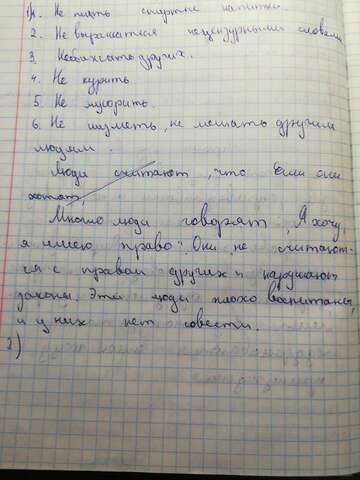 1. Не пить спиртные напитки.
2. Не выражаться нецензурными словами
3. Не обижать других.
4. Не курить.
5. Не мусорить.
6. Не шуметь, не мешать другим
людям.
Люди считают, что Если они
хотят,
Многие люди говорят „Я хочу,
я имею право". Они не считают-
ся с правом других и нарушают
законы. Эти люди плохо воспитаны,
и у них нет совести.
2)